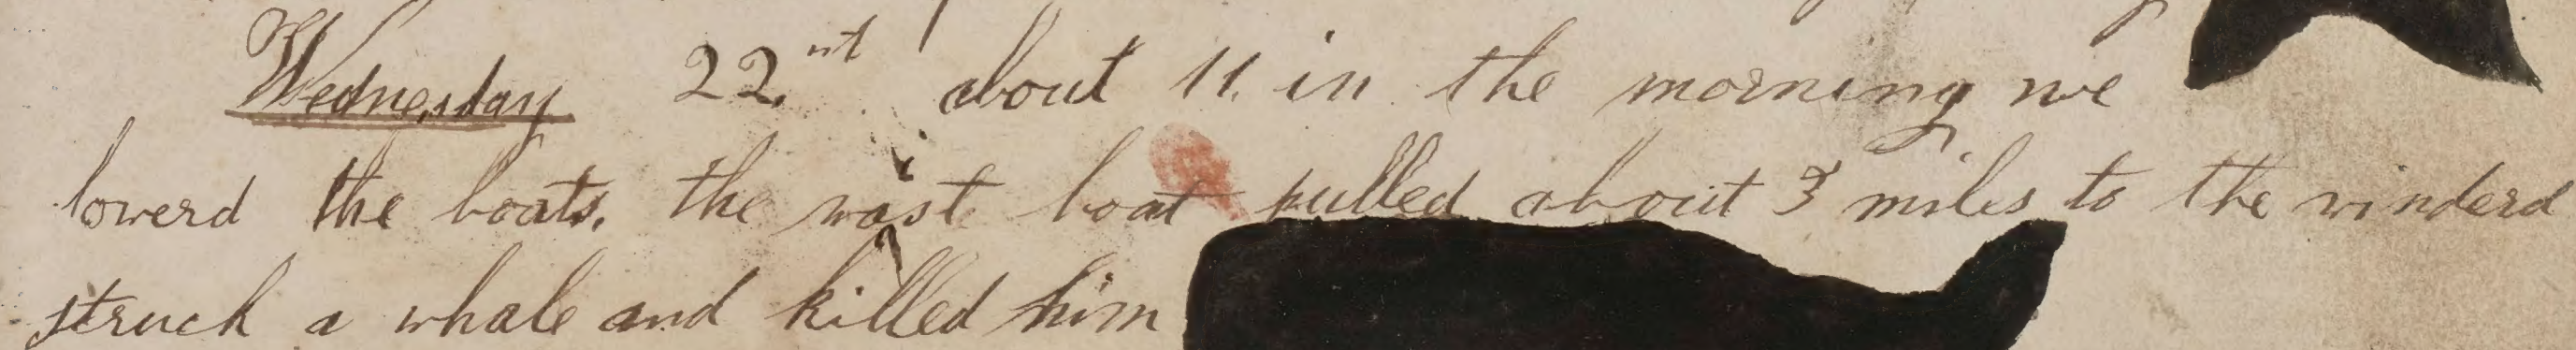 Wednesday 22nt about 11. in the morning we
lowerd the boats. the waist boat pulled about 3 miles to the winderd
struck a whale and killed him